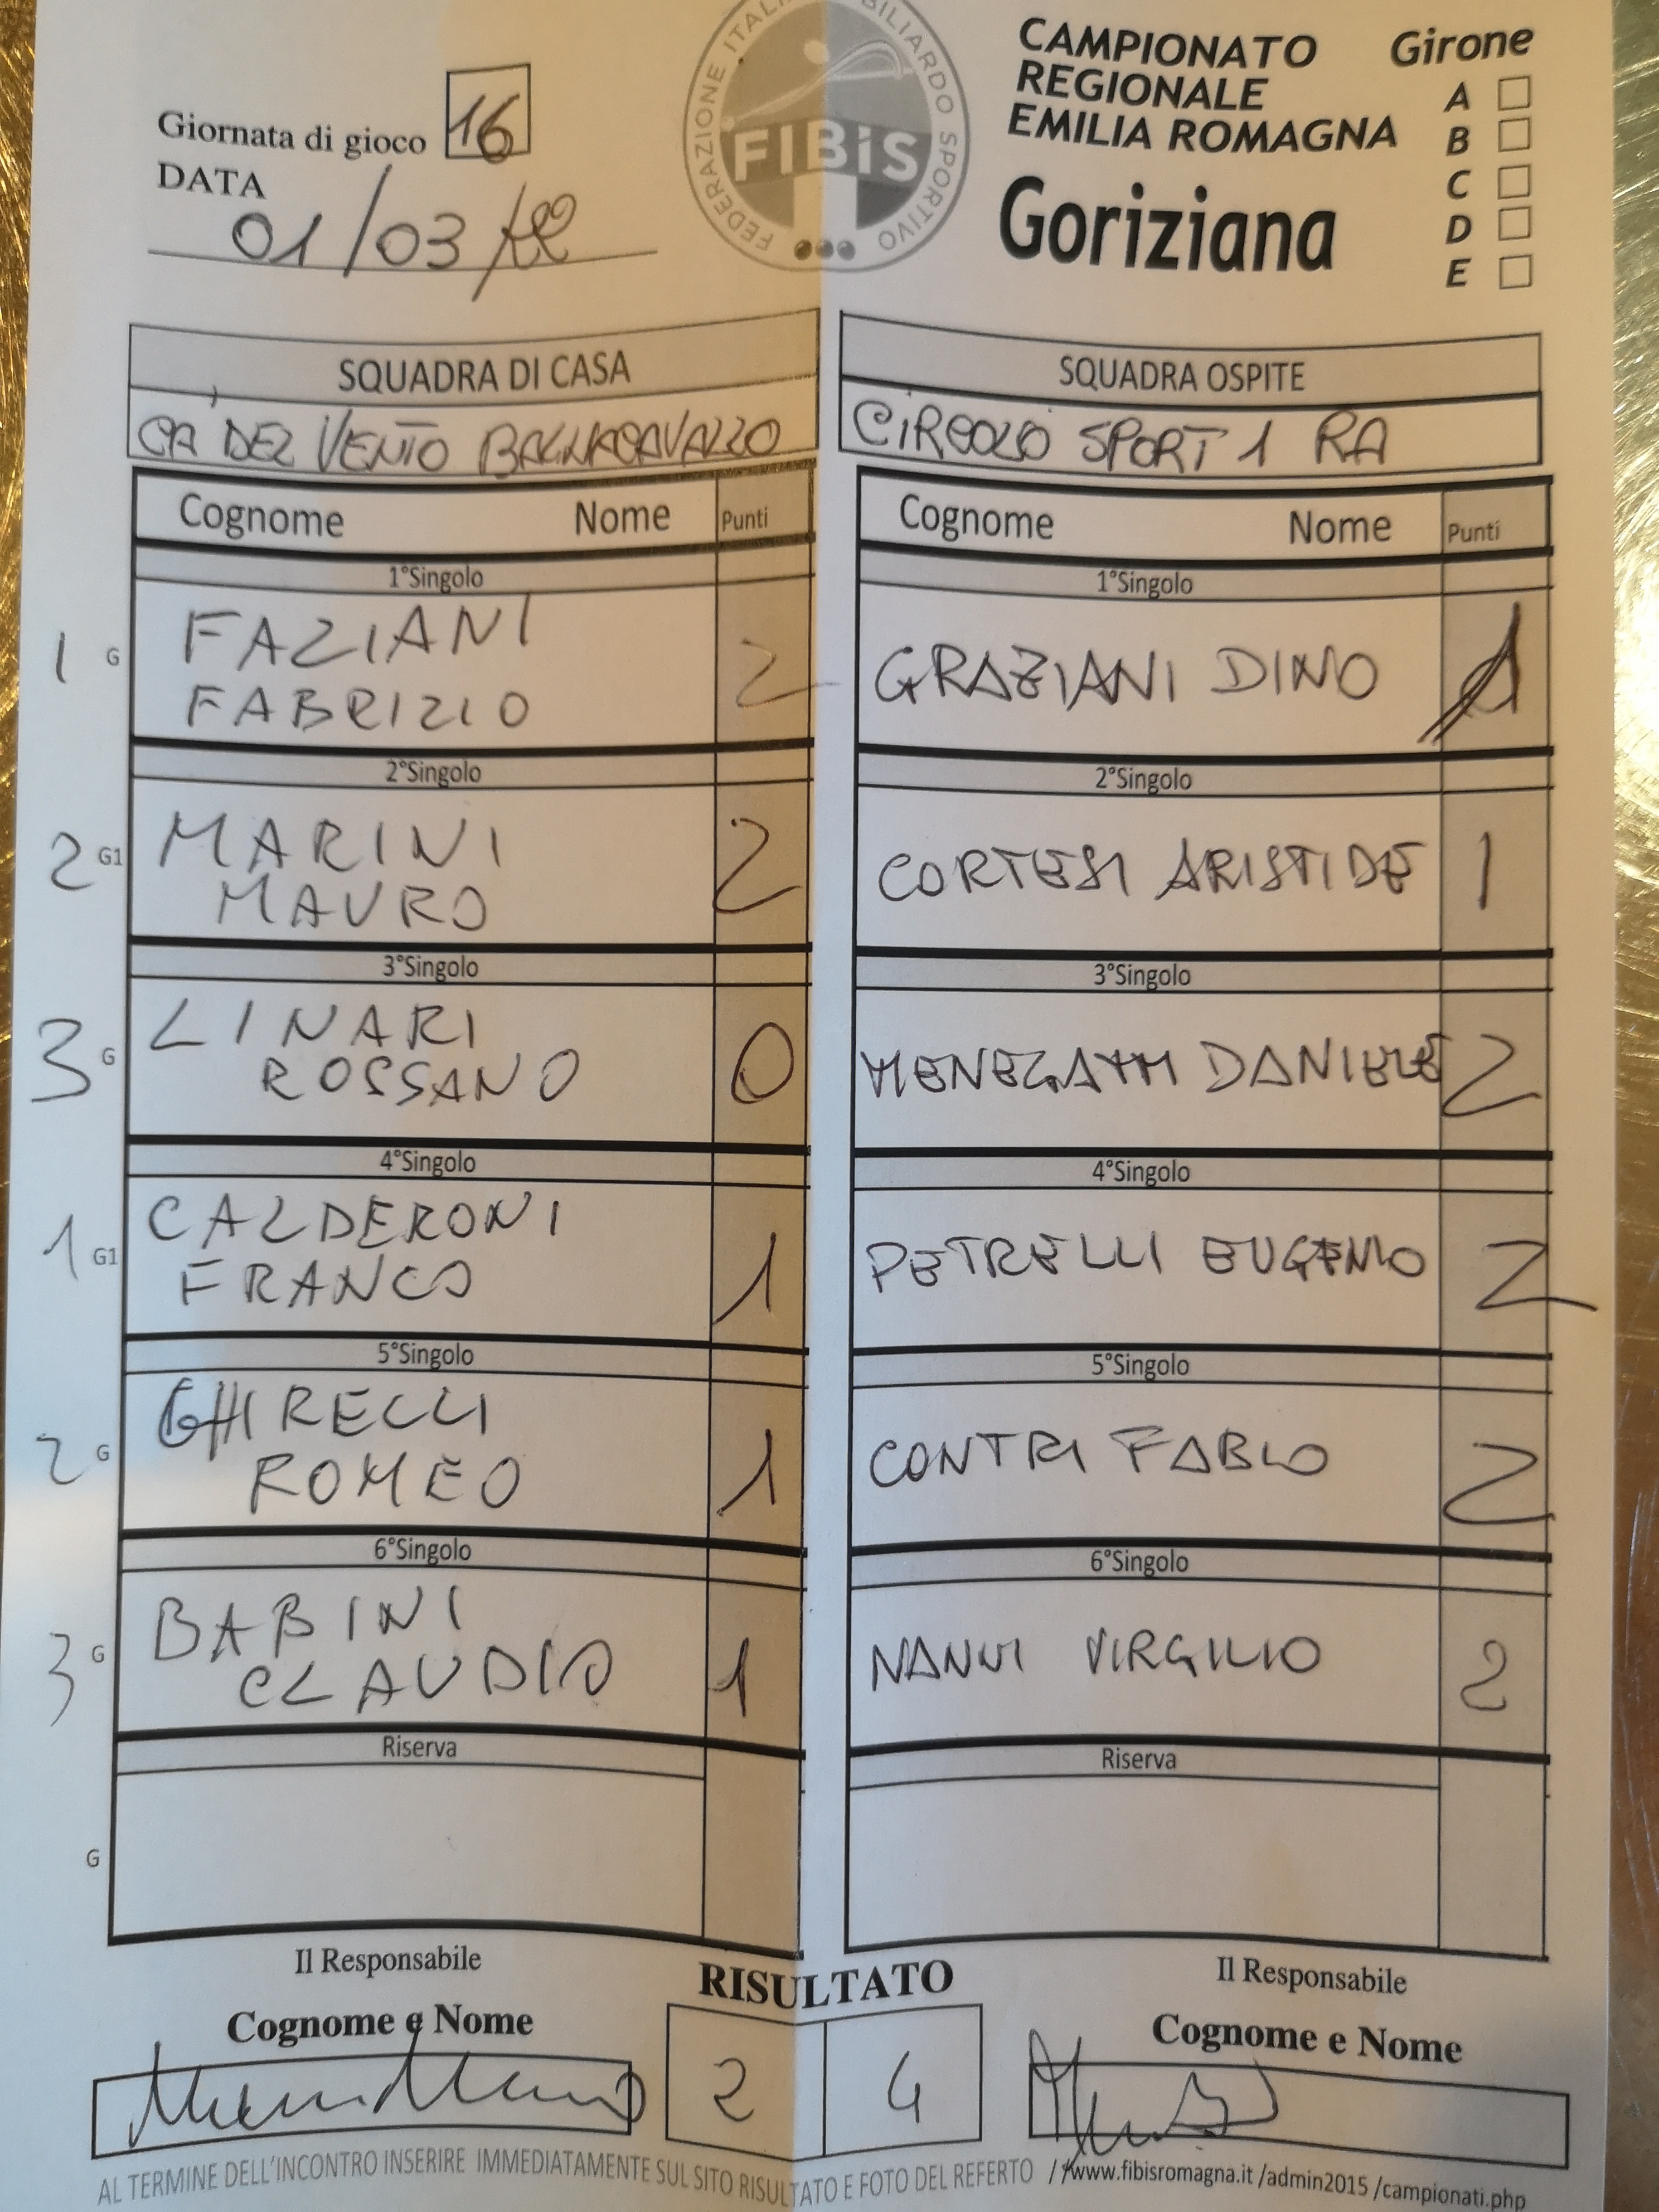 Giornata di gioco 16
DATA
01/03/22
FEDERAZIONE ITALI BILIARDO SPORTIVO
FIBiS
CAMPIONATO
REGIONALE
EMILIA ROMAGNA
Goriziana
Girone
A
B
C
D
E
SQUADRA DI CASA
CA' DEL VENTO BAGNACAVALLO
Cognome Nome Punti
1°Singolo
1 G FAZIANI 2
FABRIZIO
2°Singolo
2 G1 MARINI 2
MAURO
3°Singolo
3 G LINARI 0
ROSSANO
4°Singolo
1 G1 CALDERONI 1
FRANCO
5°Singolo
2 G GHIRELLI 1
ROMEO
6°Singolo
3 G BABINI 1
CLAUDIO
Riserva
G
SQUADRA OSPITE
CIRCOLO SPORT 1 RA
Cognome Nome Punti
1°Singolo
GRAZIANI DINO
2°Singolo
CORTESI ARISTIDE 1
3°Singolo
MENEGATTI DANIELE 2
4°Singolo
PETRELLI EUGENIO 2
5°Singolo
CONTRI FABIO 2
6°Singolo
NANNI VIRGILIO 2
Riserva
Il Responsabile
Cognome e Nome
RISULTATO
2 4
Il Responsabile
Cognome e Nome
AL TERMINE DELL'INCONTRO INSERIRE IMMEDIATAMENTE SUL SITO RISULTATO E FOTO DEL REFERTO //www.fibisromagna.it /admin2015 /campionati.php